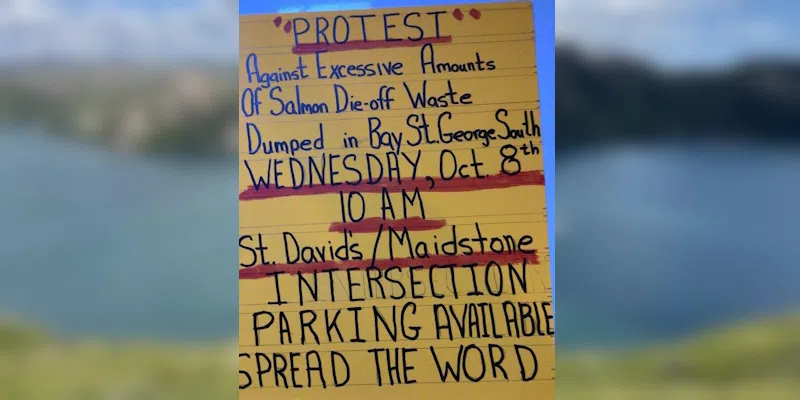 "PROTEST"
Against Excessive Amounts
Of Salmon Die-off Waste
Dumped in Bay St. George South
WEDNESDAY, Oct. 8th
10 AM
St. David's/Maidstone
INTERSECTION
PARKING AVAILABLE
SPREAD THE WORD